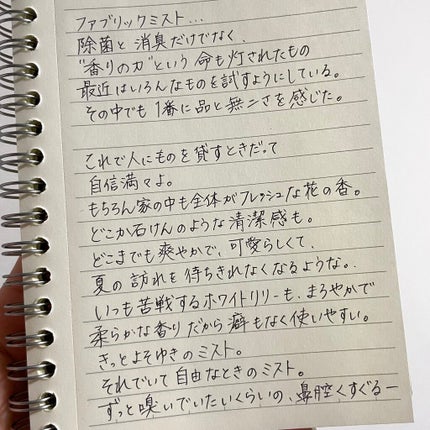 ファブリックミスト...
除菌と消臭だけでなく、
"香りの力"という命も灯されたもの
最近はいろんなものを試すようにしている。
その中でも1番に品と無二さを感じた。
これで人にものを貸すときだって
自信満々よ。
もちろん家の中も全体がフレッシュな花の香。
どこか石けんのような清潔感も。
どこまでも爽やかで、可愛らしくて、
夏の訪れを待ちきれなくなるような。
いつも苦戦するホワイトリリーも、まろやかで
柔らかな香りだから癖もなく使いやすい。
きっとよそゆきのミスト。
それでいて自由なときのミスト。
ずっと嗅いでいたいくらいの、鼻腔くすぐるー